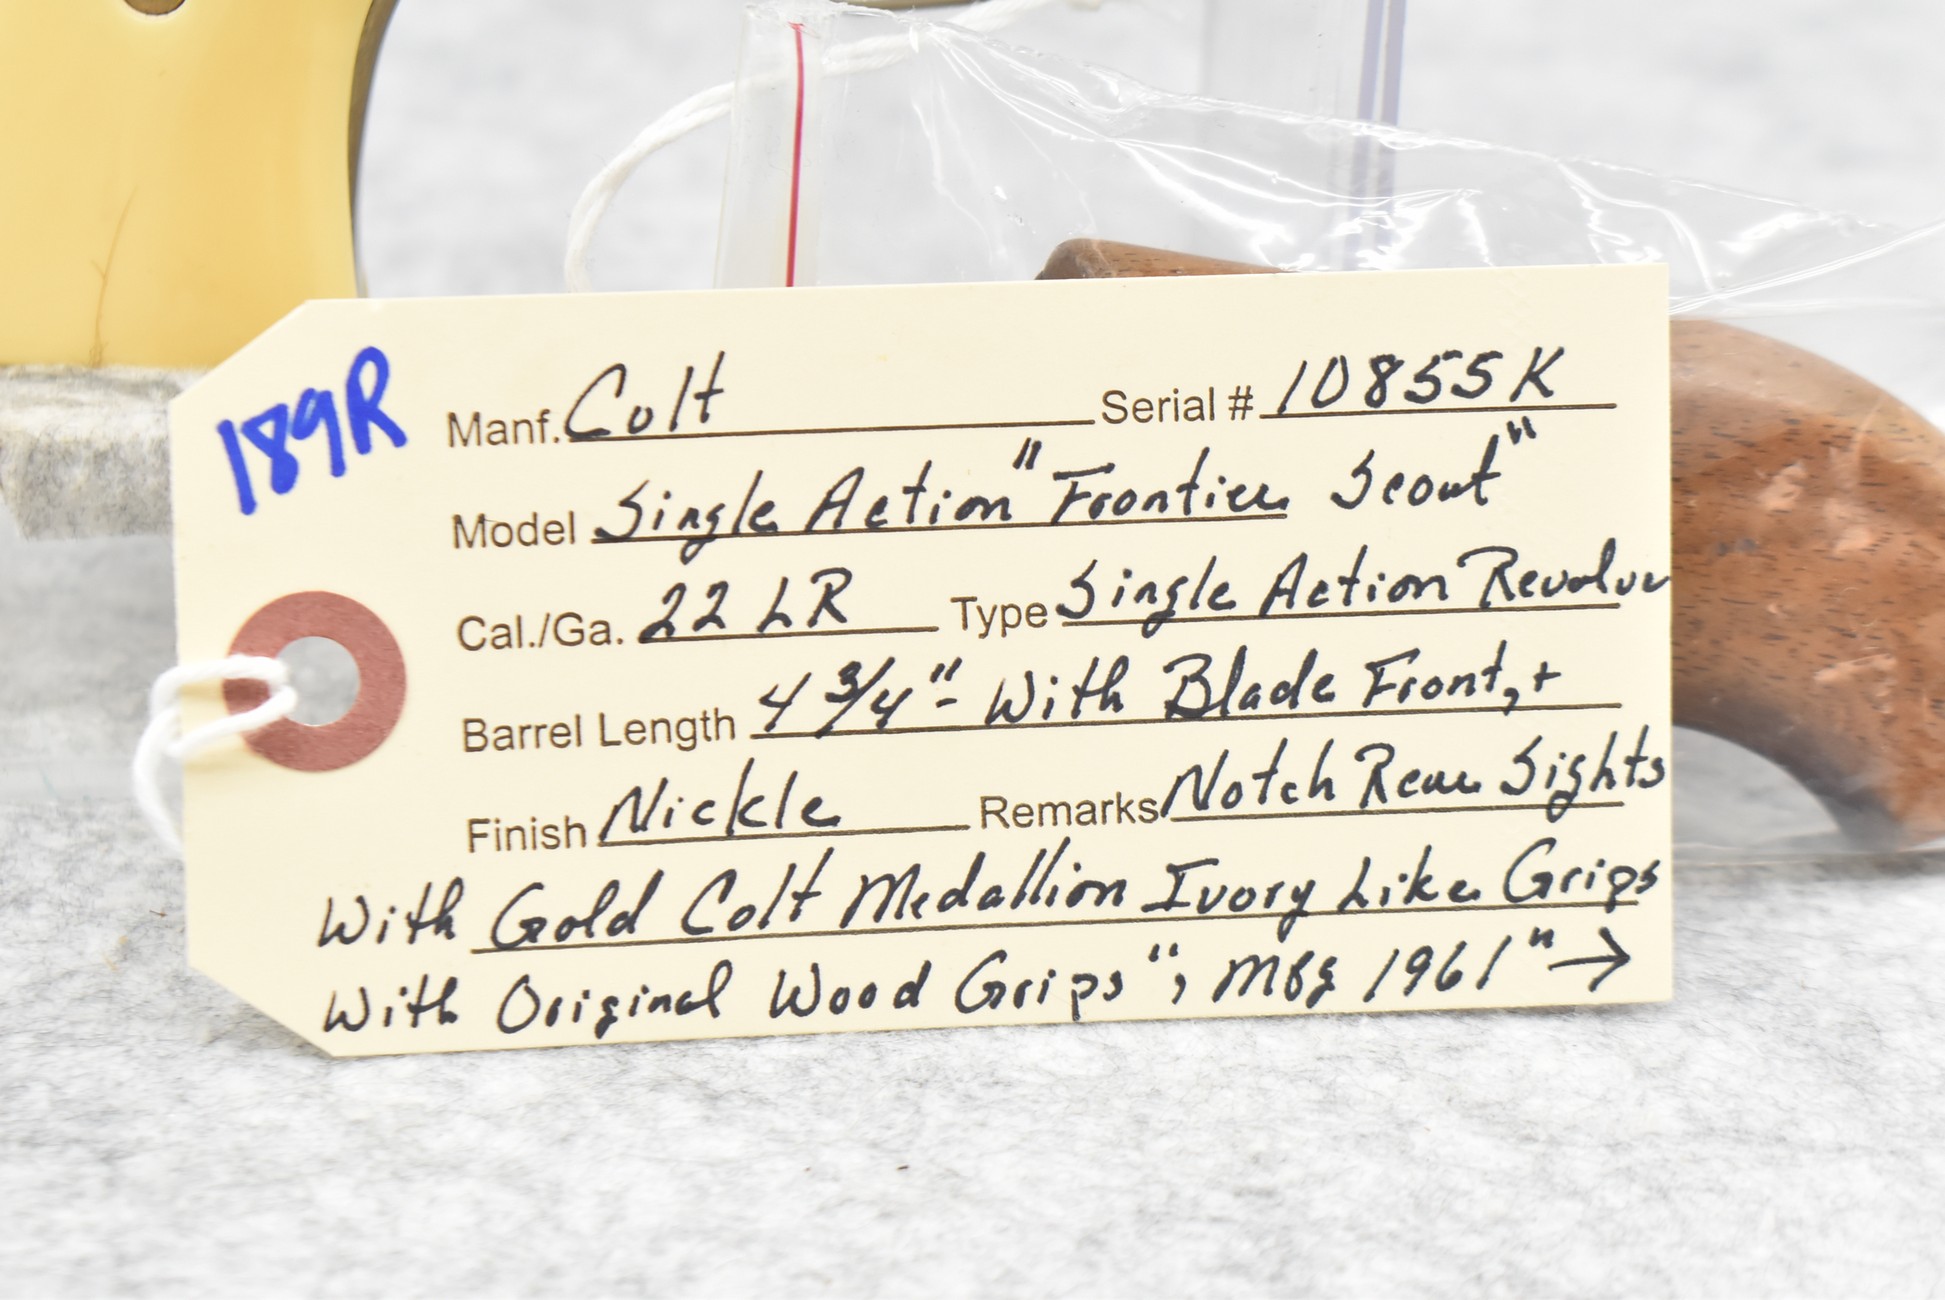 189R
Manf. Colt Serial # 10855K
Model Single Action "Frontier Scout"
Cal./Ga. 22 LR Type Single Action Revolver
Barrel Length 4 3/4"- With Blade Front, +
Finish Nickle Remarks Notch Rear Sights
With Gold Colt Medallion Ivory Like Grips
With Original Wood Grips", Mfg 1961" →